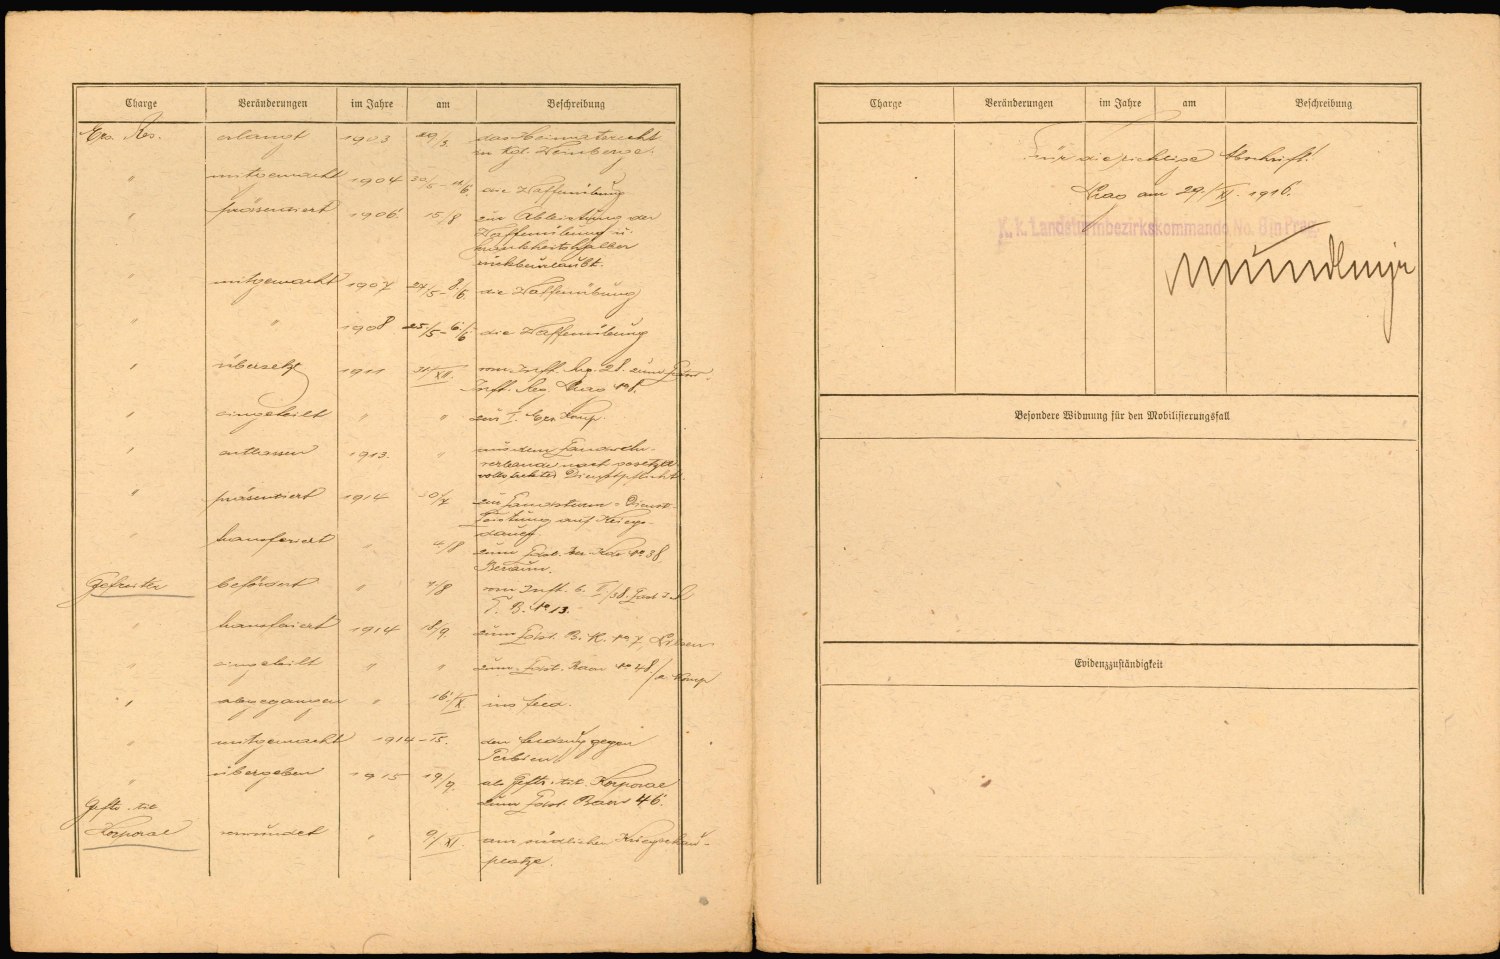 Charge Veränderungen im Jahre am Beschreibung
Ers. Res. erlangt 1903 29/3. das Heimatsrecht
in Kgl. Weinberge.
" mitgemacht 1904 30/5-11/6. die Waffenübung
" präsentiert 1906 15/8 zur Ableistung der
Waffenübung u.
krankheitshalber
rückbeurlaubt.
" mitgemacht 1907 27/5-8/6. die Waffenübung
" " 1908 25/5-6/6 die Waffenübung
" übersetzt 1911 31/XII. vom Inft. Reg. 28. zum
Inft. Reg. Prag No 8.
" eingeteilt " " zur I. Ers. Komp.
" entlassen 1913. " aus dem Landwehr-
verbande nach gesetzl.
vollstreckter Dienstpflicht.
" präsentiert 1914 30/7 zur Landsturm-Dienst-
leistung auf Kriegs-
dauer.
" transferiert " 4/8 zum Ldst. Bez. Kdo No 38
Beraun.
Gefreiter befördert " 7/8 vom Inft. b. II/38.
T. B. No 13.
" transferiert 1914 18/9. zum Ldst. B. K. No 7, Pilsen
" eingeteilt " " zum Ldst. Baon No 48/a. Komp
" abgegangen " 16./X ins Feld.
" mitgemacht 1914-15. den Feldzug gegen
Serbien
" übergeben 1915 19/9. als Gefr. tit. Korporal
zum Ldst. Baon 46.
Gefr. tit.
Korporal verwundet " 9./XI. am südlichen Kriegsschau-
platze.
Charge Veränderungen im Jahre am Beschreibung
Für die richtige Abschrift.
Prag am 29./XI. 1916.
K. k. Landsturmbezirkskommando No. 8 in Prag.
Besondere Widmung für den Mobilisierungsfall
Evidenzzuständigkeit